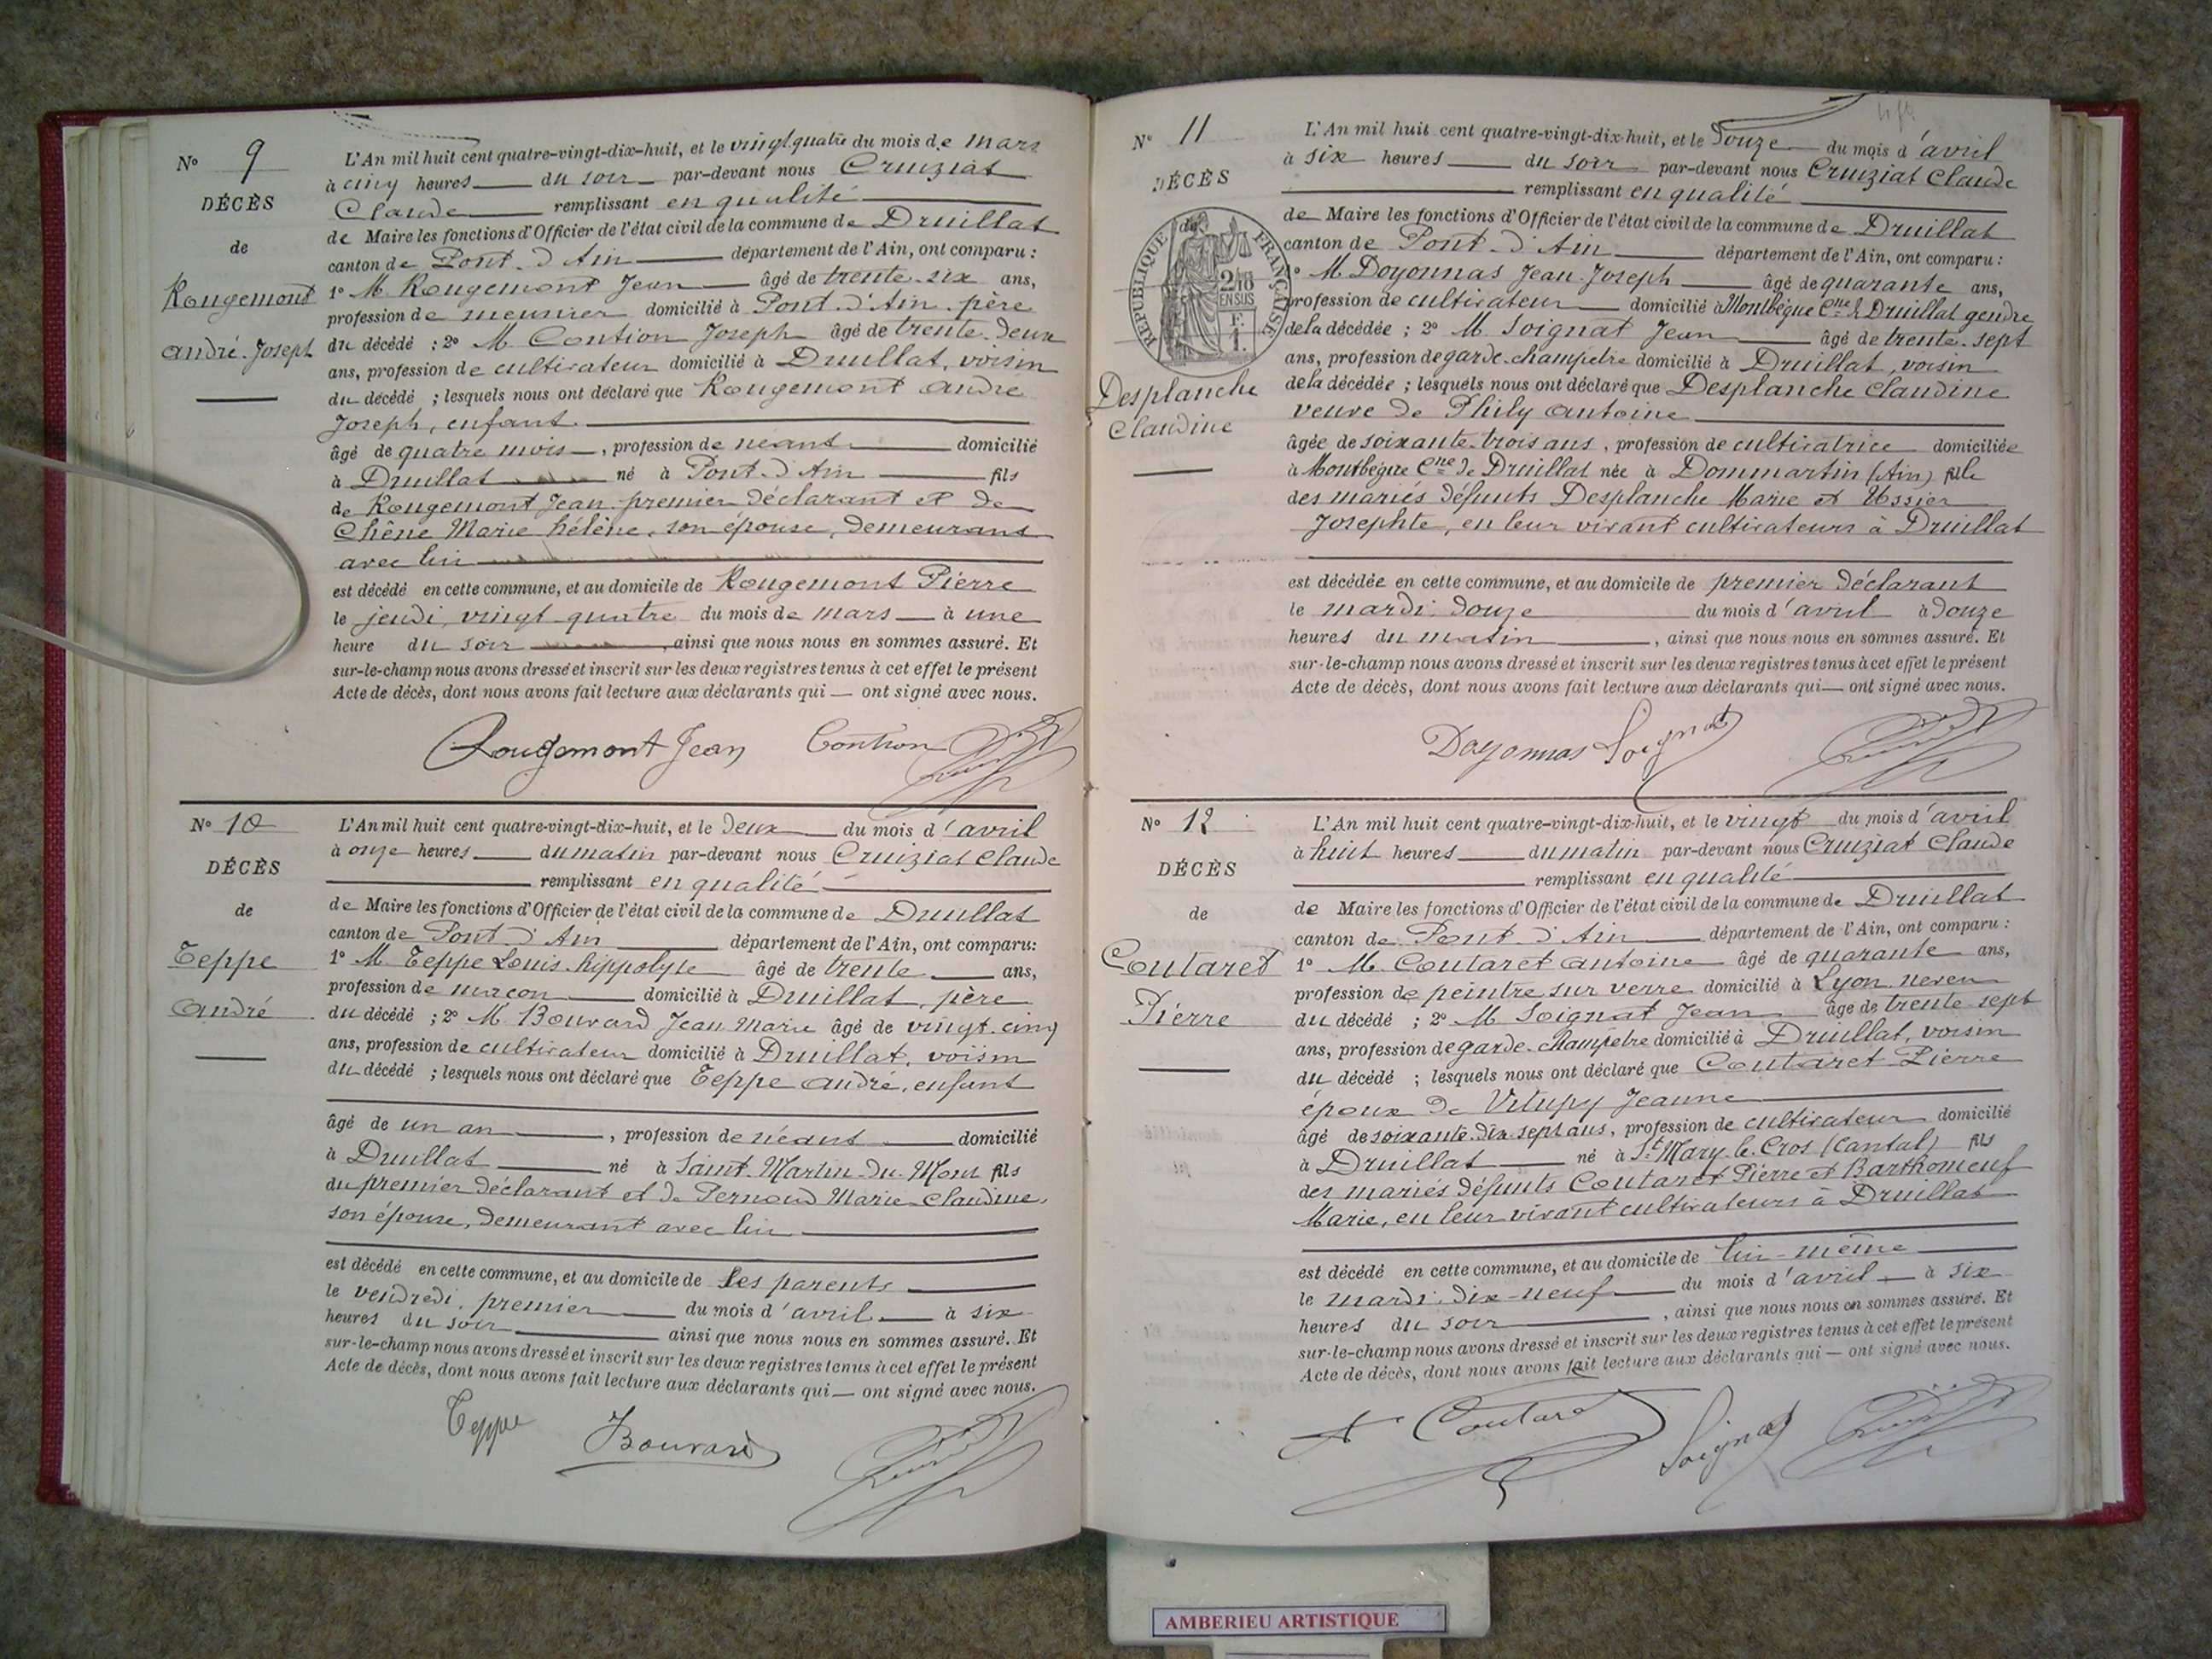 N° 9
DÉCÈS
de
Rougemont
André-Joseph
L'An mil huit cent quatre-vingt-dix-huit, et le vingt quatre du mois de mars
à cinq heures du soir par-devant nous Cruiziat
Claude remplissant en qualité
de Maire les fonctions d'Officier de l'état civil de la commune de Druillat
canton de Pont-d'Ain département de l'Ain, ont comparu :
1° M. Rougemont Jean âgé de trente-six ans,
profession de meunier domicilié à Pont-d'Ain, père
du décédé ; 2° M. Contion Joseph âgé de trente-deux
ans, profession de cultivateur domicilié à Druillat, voisin
du décédé ; lesquels nous ont déclaré que Rougemont André
Joseph, enfant
âgé de quatre mois, profession de néant domicilié
à Druillat né à Pont-d'Ain fils
de Rougemont Jean premier déclarant et de
Chêne Marie hélène, son épouse, demeurant
avec lui
est décédé en cette commune, et au domicile de Rougemont Pierre
le jeudi, vingt-quatre du mois de mars à une
heure du soir, ainsi que nous nous en sommes assuré. Et
sur-le-champ nous avons dressé et inscrit sur les deux registres tenus à cet effet le présent
Acte de décès, dont nous avons fait lecture aux déclarants qui — ont signé avec nous.
Rougemont Jean Contion
N° 10
DÉCÈS
de
Teppe
André
L'An mil huit cent quatre-vingt-dix-huit, et le deux du mois d'avril
à onze heures du matin par-devant nous Cruiziat Claude
remplissant en qualité
de Maire les fonctions d'Officier de l'état civil de la commune de Druillat
canton de Pont-d'Ain département de l'Ain, ont comparu :
1° M. Teppe Louis-hippolyte âgé de trente ans,
profession de maçon domicilié à Druillat, père
du décédé ; 2° M. Bouvard Jean Marie âgé de vingt-cinq
ans, profession de cultivateur domicilié à Druillat, voisin
du décédé ; lesquels nous ont déclaré que Teppe André, enfant
âgé de un an, profession de néant domicilié
à Druillat né à Saint-Martin-du-Mont fils
du premier déclarant et de Pernoud Marie-Claudine,
son épouse, demeurant avec lui
est décédé en cette commune, et au domicile de ses parents
le vendredi, premier du mois d'avril à six
heures du soir ainsi que nous nous en sommes assuré. Et
sur-le-champ nous avons dressé et inscrit sur les deux registres tenus à cet effet le présent
Acte de décès, dont nous avons fait lecture aux déclarants qui — ont signé avec nous.
Teppe Bouvard
N° 11
DÉCÈS
de
RÉPUBLIQUE FRANÇAISE
2/10
EN SUS
F.
1.
Desplanche
Claudine
L'An mil huit cent quatre-vingt-dix-huit, et le douze du mois d'avril
à six heures du soir par-devant nous Cruiziat Claude
remplissant en qualité
de Maire les fonctions d'Officier de l'état civil de la commune de Druillat
canton de Pont-d'Ain département de l'Ain, ont comparu :
1° M. Doyonnas Jean-Joseph âgé de quarante ans,
profession de cultivateur domicilié à Montbègue Cne de Druillat gendre
de la décédée ; 2° M. Soignat Jean âgé de trente-sept
ans, profession de garde-champêtre domicilié à Druillat, voisin
de la décédée ; lesquels nous ont déclaré que Desplanche Claudine
veuve de Phily Antoine
âgée de soixante-trois ans, profession de cultivatrice domiciliée
à Montbègue Cne de Druillat née à Dommartin (Ain) fille
des mariés défunts Desplanche Marie et Ussier
Josephte, en leur vivant cultivateurs à Druillat
est décédée en cette commune, et au domicile de premier déclarant
le mardi, douze du mois d'avril à douze
heures du matin, ainsi que nous nous en sommes assuré. Et
sur-le-champ nous avons dressé et inscrit sur les deux registres tenus à cet effet le présent
Acte de décès, dont nous avons fait lecture aux déclarants qui — ont signé avec nous.
Doyonnas Soignat
N° 12
DÉCÈS
de
Coutaret
Pierre
L'An mil huit cent quatre-vingt-dix-huit, et le vingt du mois d'avril
à huit heures du matin par-devant nous Cruiziat Claude
remplissant en qualité
de Maire les fonctions d'Officier de l'état civil de la commune de Druillat
canton de Pont-d'Ain département de l'Ain, ont comparu :
1° M. Coutaret Antoine âgé de quarante ans,
profession de peintre sur verre domicilié à Lyon neveu
du décédé ; 2° M. Soignat Jean âgé de trente-sept
ans, profession de garde-champêtre domicilié à Druillat, voisin
du décédé ; lesquels nous ont déclaré que Coutaret Pierre
époux de Vitupy Jeanne
âgé de soixante-dix-sept ans, profession de cultivateur domicilié
à Druillat né à St-Mary-le-Cros (Cantal) fils
des mariés défunts Coutaret Pierre et Barthomeuf
Marie, en leur vivant cultivateurs à Druillat
est décédé en cette commune, et au domicile de lui-même
le mardi, dix-neuf du mois d'avril à six
heures du soir, ainsi que nous nous en sommes assuré. Et
sur-le-champ nous avons dressé et inscrit sur les deux registres tenus à cet effet le présent
Acte de décès, dont nous avons fait lecture aux déclarants qui — ont signé avec nous.
A Coutaret Soignat
AMBERIEU ARTISTIQUE